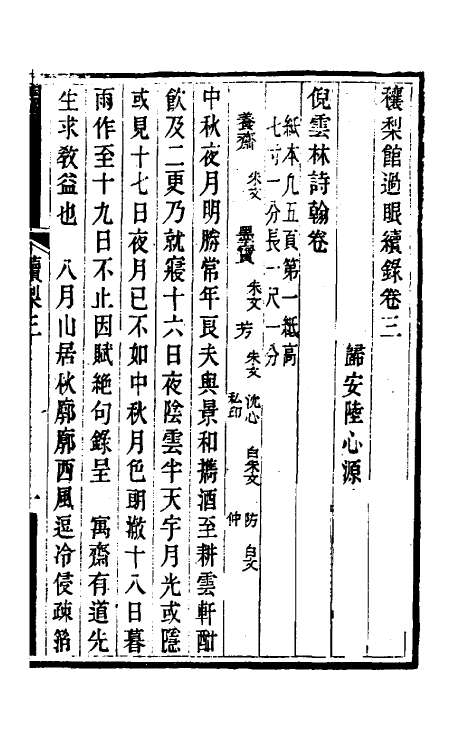 穰梨館過眼續錄卷三
歸安陸心源
倪雲林詩翰卷
紙本凡五頁第一紙高
七寸一分長一尺一分
養齋 朱文 墨寶 朱文 芳 朱文 沈心私印 白朱文 防仲 白文
中秋夜月明勝常年艮夫與景和攜酒至耕雲軒酣
飲及二更乃就寢十六日夜陰雲半天宇月光或隱
或見十七日夜月已不如中秋月色明澈十八日暮
雨作至十九日不止因賦絶句錄呈 寓齋有道先
生求教益也 八月山居秋廓廓西風逗冷侵疎箔
續梨三
一